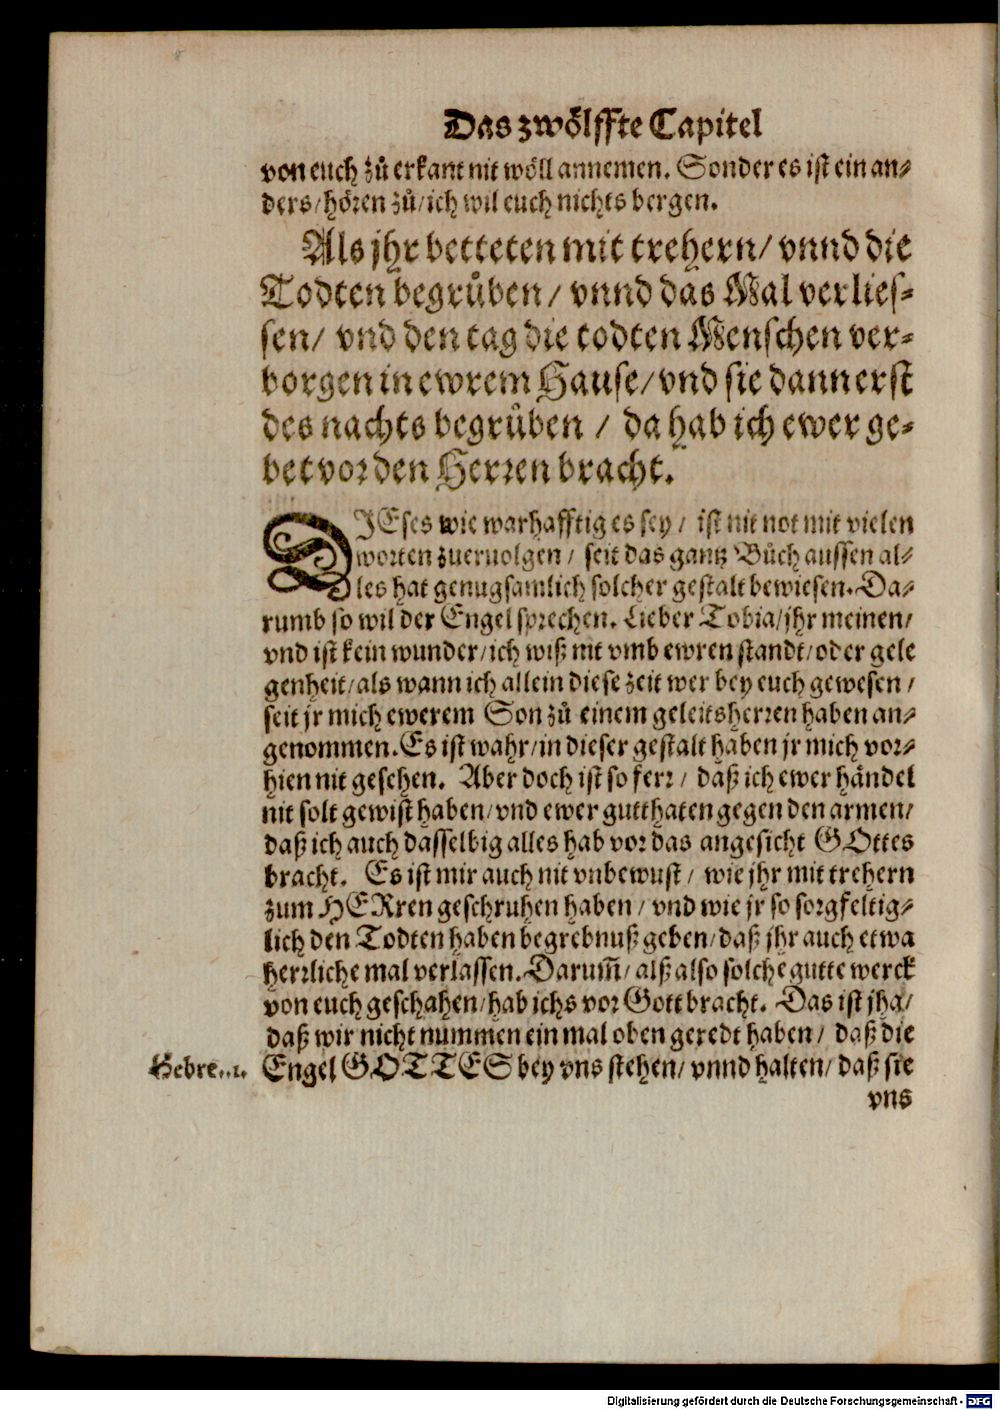 Das zwölffte Capitel
von euch zů erkant nit wöll annemen. Sonder es ist ein an⸗
ders/ hören zů/ ich wil euch nichts bergen.
Als jhr betteten mit trehern/ vnnd die
Todten begrůben/ vnnd das Mal verlies⸗
sen/ vnd den tag die todten Menschen ver⸗
borgen in ewrem Hause/ vnd sie dann erst
des nachts begrůben / da hab ich ewer ge⸗
bet vor den Herren bracht.
DIEses wie warhafftig es sey / ist nit not mit vielen
worten zueruolgen / seit das gantz Bůch aussen al⸗
les hat genugsamlich solcher gestalt bewiesen. Da⸗
rumb so wil der Engel sprechen. Lieber Tobia/ jhr meinen/
vnd ist kein wunder/ ich wiß nit vmb ewren standt/ oder gele
genheit/ als wann ich allein diese zeit wer bey euch gewesen /
seit jr mich ewerem Son zů einem geleitsherren haben an⸗
genommen. Es ist wahr/ in dieser gestalt haben jr mich vor⸗
hien nit gesehen. Aber doch ist so ferr / daß ich ewer händel
nit solt gewist haben/ vnd ewer gutthaten gegen den armen/
daß ich auch dasselbig alles hab vor das angesicht GOttes
bracht. Es ist mir auch nit vnbewust / wie jhr mit trehern
zum HERren geschruhen haben / vnd wie jr so sorgfeltig⸗
lich den Todten haben begrebnuß geben/ daß jhr auch etwa
herrliche mal verlassen. Darum̃/ alß also solche gutte werck
von euch geschahen/ hab ichs vor Gott bracht. Das ist jha/
daß wir nicht nummen ein mal oben geredt haben / daß die
Hebre. 1. Engel GOTTES bey vns stehen/ vnnd halten/ daß sie
vns
Digitalisierung gefördert durch die Deutsche Forschungsgemeinschaft - DFG